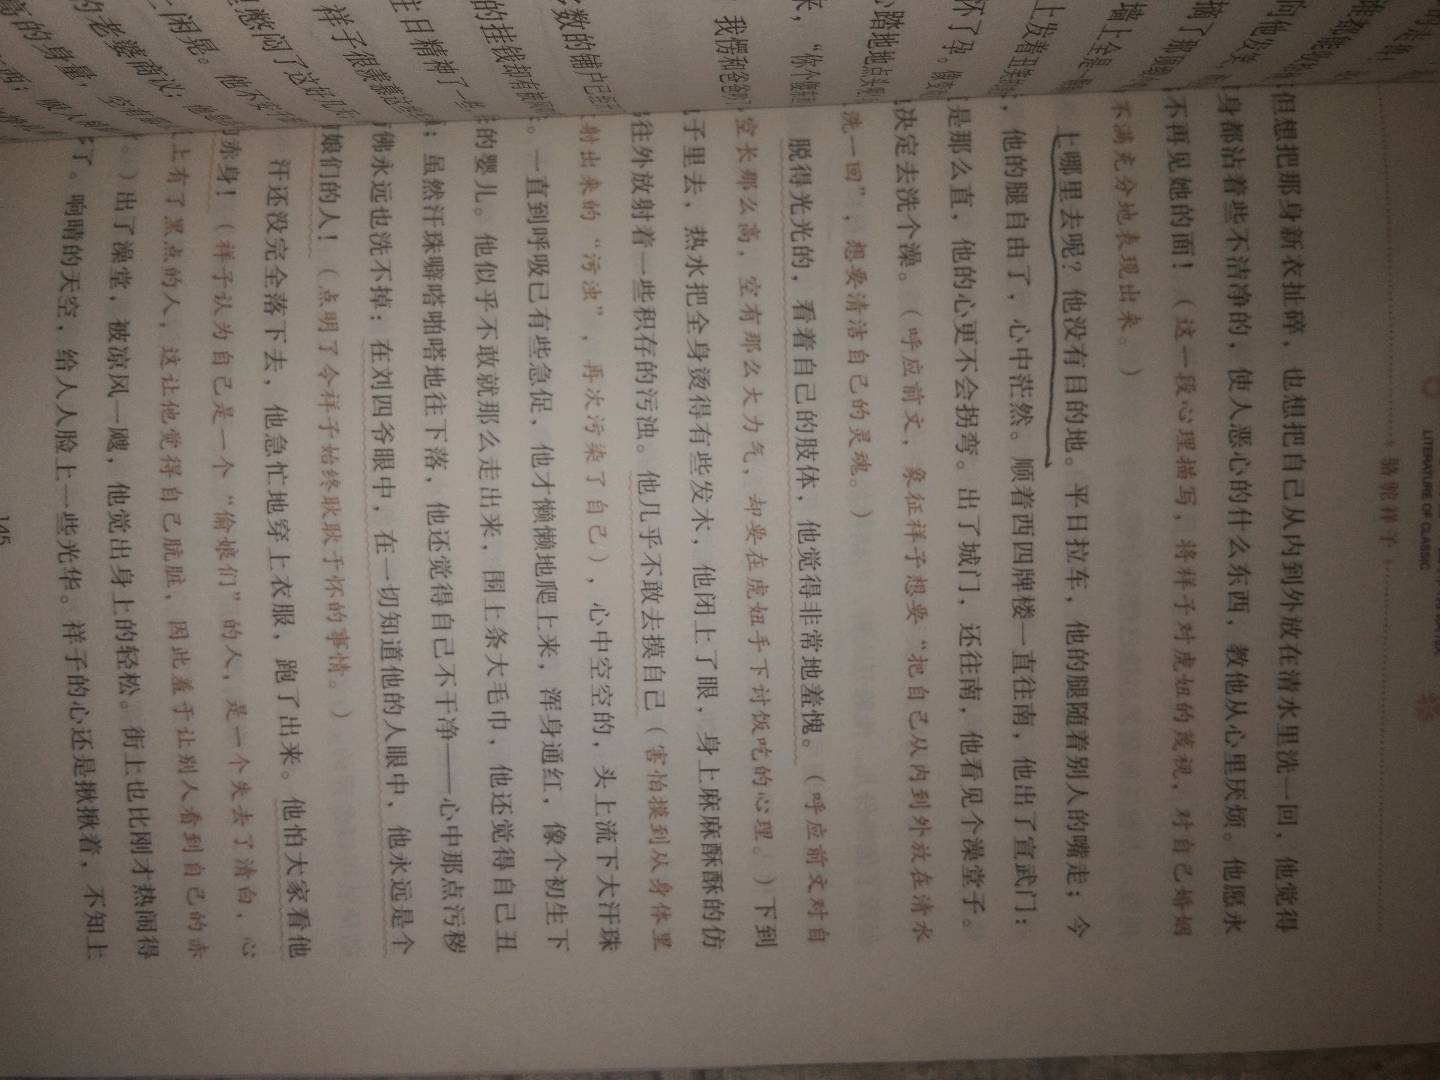 骆驼祥子
LITERATURE OF CLASSIC
但想把那身新衣扯碎，也想把自己从内到外放在清水里洗一回，他觉得
身都沾着些不洁净的，使人恶心的什么东西，教他从心里厌烦。他愿永
不再见她的面！（这一段心理描写，将祥子对虎妞的蔑视，对自己婚姻
不满充分地表现出来。）
上哪里去呢？他没有目的地。平日拉车，他的腿随着别人的嘴走；今
，他的腿自由了，心中茫然。顺着西四牌楼一直往南，他出了宣武门：
是那么直，他的心更不会拐弯。出了城门，还往南，他看见个澡堂子。
决定去洗个澡。（呼应前文，象征祥子想要“把自己从内到外放在清水
洗一回”，想要清洁自己的灵魂。）
脱得光光的，看着自己的肢体，他觉得非常地羞愧。（呼应前文对自
空长那么高，空有那么大力气，却要在虎妞手下讨饭吃的心理。）下到
子里去，热水把全身烫得有些发木，他闭上了眼，身上麻麻酥酥的仿
往外放射着一些积存的污浊。他几乎不敢去摸自己（害怕摸到从身体里
射出来的“污浊”，再次污染了自己），心中空空的，头上流下大汗珠
。一直到呼吸已有些急促，他才懒懒地爬上来，浑身通红，像个初生下
的婴儿。他似乎不敢就那么走出来，围上条大毛巾，他还觉得自己丑
；虽然汗珠噼嗒啪嗒地往下落，他还觉得自己不干净——心中那点污秽
佛永远也洗不掉：在刘四爷眼中，在一切知道他的人眼中，他永远是个
娘们的人！（点明了令祥子始终耿耿于怀的事情。）
汗还没完全落下去，他急忙地穿上衣服，跑了出来。他怕大家看他
赤身！（祥子认为自己是一个“偷娘们”的人，是一个失去了清白，心
上有了黑点的人，这让他觉得自己肮脏，因此羞于让别人看到自己的赤
。）出了澡堂，被凉风一飕，他觉出身上的轻松。街上也比刚才热闹得
了。响晴的天空，给人人脸上一些光华。祥子的心还是揪揪着，不知上
145
上发着丑
怀了孕。
心踏地地点头
来，“你个傻
我愣和爸爸
多数的铺户已
的挂钱却有被
往日精神了一些
祥子很羡慕这
憋闷了这好几
闲晃。他不安于
老婆商议；
高的身量，